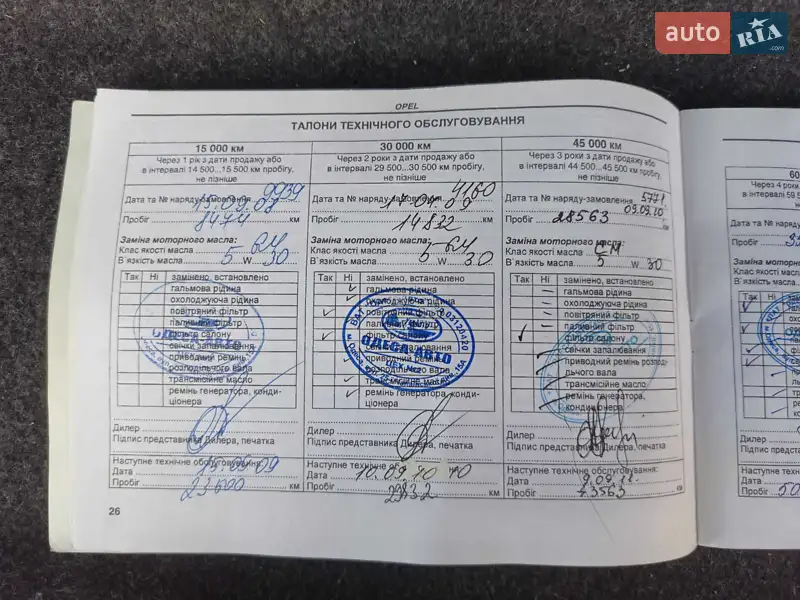 auto RIA .com
OPEL
ТАЛОНИ ТЕХНІЧНОГО ОБСЛУГОВУВАННЯ
15 000 км
Через 1 рік з дати продажу або
в інтервалі 14 500...15 500 км пробігу,
не пізніше
Дата та № наряду-замовлення 9939
Пробіг 8474 км
Заміна моторного масла:
Клас якості масла
В`язкість масла 5 W 30
Так Ні замінено, встановлено
гальмова рідина
охолоджуюча рідина
повітряний фільтр
паливний фільтр
фільтр салону
свічки запалювання
приводний ремінь
розподільчого вала
трансмісійне масло
ремінь генератора, конди-
ціонера
Дилер
Підпис представника Дилера, печатка
Наступне технічне обслуговування:
Дата
Пробіг 23600 км
30 000 км
Через 2 роки з дати продажу або
в інтервалі 29 500...30 500 км пробігу,
не пізніше
Дата та № наряду-замовлення 4160
Пробіг 14832 км
Заміна моторного масла:
Клас якості масла
В`язкість масла 5 W 30
Так Ні замінено, встановлено
гальмова рідина
охолоджуюча рідина
повітряний фільтр
паливний фільтр
фільтр салону
свічки запалювання
приводний ремінь
розподільчого вала
трансмісійне масло
ремінь генератора, конди-
ціонера
ОДЕСА-АВТО
Дилер
Підпис представника Дилера, печатка
Наступне технічне
Дата
Пробіг км
45 000 км
Через 3 роки з дати продажу або
в інтервалі 44 500...45 500 км пробігу,
не пізніше
Дата та № наряду-замовлення 5771
09.09.10
Пробіг 28563 км
Заміна моторного масла:
Клас якості масла
В`язкість масла 5 W 30
Так Ні замінено, встановлено
гальмова рідина
охолоджуюча рідина
повітряний фільтр
паливний фільтр
фільтр салону
свічки запалювання
приводний ремінь розпо-
дільчого вала
трансмісійне масло
ремінь генератора,
кондиціонера
Дилер
Підпис представника Дилера, печатка
Наступне технічне обслуговування:
Дата 9.09.11
Пробіг 43563 км
26
60
Через 4 роки
в інтервалі 59 5
Дата та №
Пробіг
Заміна мотор
Клас якості ма
В`язкість масл
Так Ні
Дилер
Підпис предста
Наступне техні
Дата
Пробіг 50